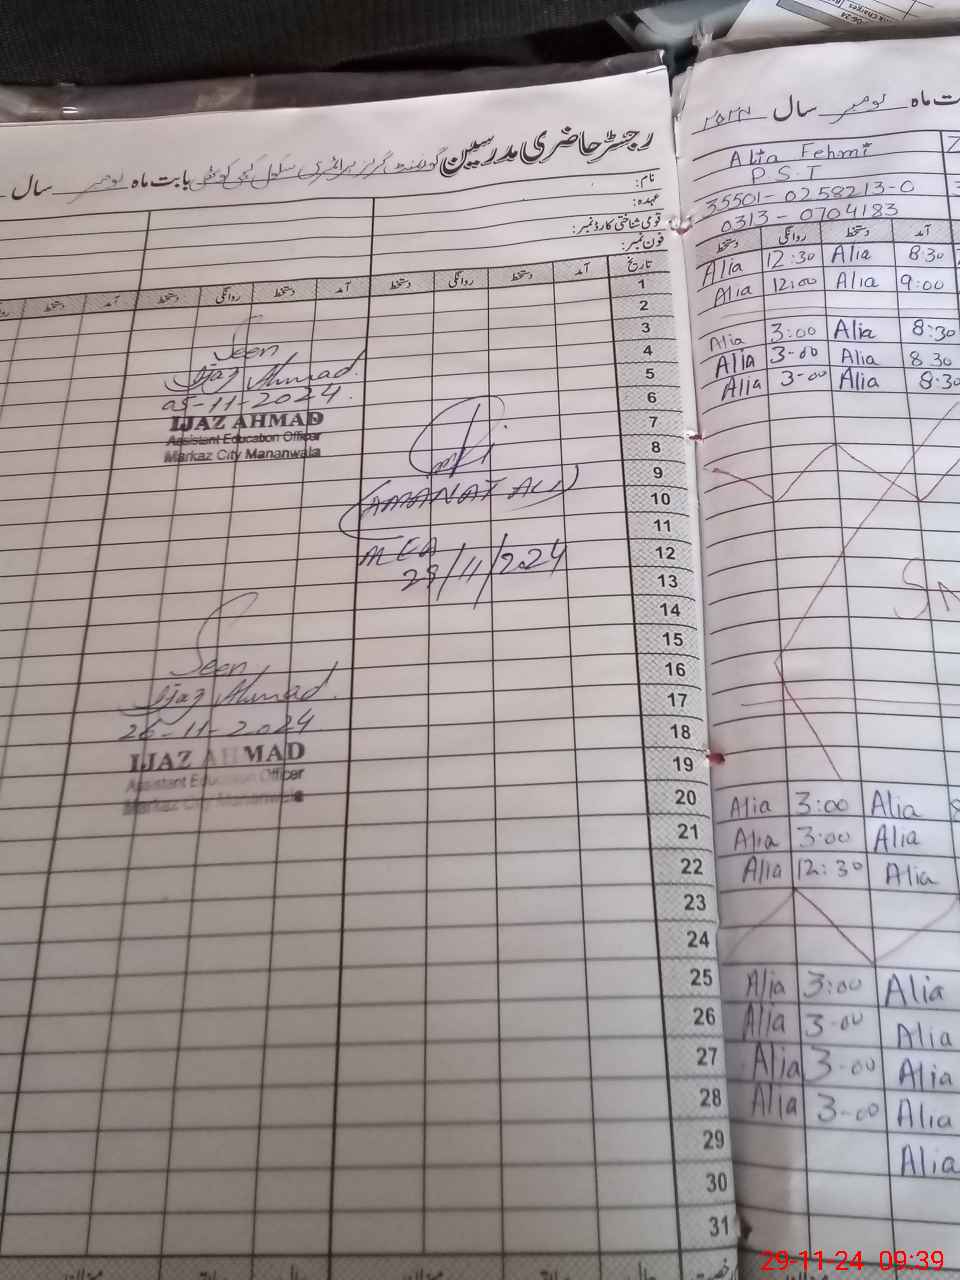 رجسٹر حاضری مدرسین گورنمنٹ گرلز پرائمری سکول بابت ماہ نومبر سال
نام:
عہدہ:
قومی شناختی کارڈ نمبر:
فون نمبر:
تاریخ آمد دستخط روانگی دستخط آمد دستخط روانگی دستخط آمد دستخط
1
2
3
4
5
6
7
8
9
10
11
12
13
14
15
16
17
18
19
20
21
22
23
24
25
26
27
28
29
30
31
Seen
Ijaz Ahmad
05-11-2024
IJAZ AHMAD
Assistant Education Officer
Markaz City Mananwala
(AMANAT ALI)
MEA
29/11/2024
Seen
Ijaz Ahmad
26-11-2024
IJAZ AHMAD
Assistant Education Officer
Markaz City Mananwala
ت ماہ نومبر سال ۲۰۲۴
Alia Fehmi
P.S.T
35501-0258213-0
0313-0704183
آمد دستخط روانگی دستخط
Alia 12:30 Alia 8:30
Alia 12:00 Alia 9:00
Alia 3:00 Alia 8:30
Alia 3-00 Alia 8 30
Alia 3-00 Alia 8:30
Alia 3:00 Alia
Alia 3:00 Alia
Alia 12:30 Alia
Alia 3:00 Alia
Alia 3-00 Alia
Alia 3-00 Alia
Alia 3-00 Alia
Alia
29-11-24 09:39